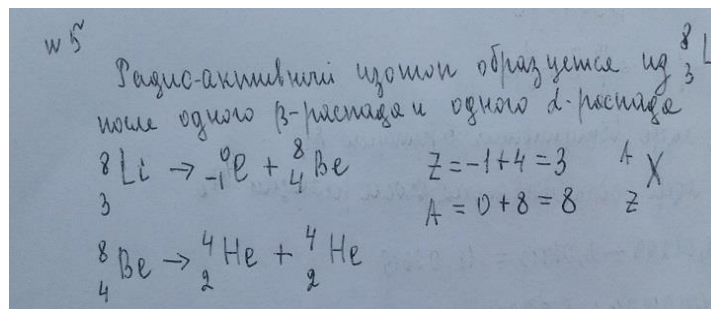 № 5
Радио-активный изотоп образуется из ⁸₃L
после одного β-распада и одного α-распада
⁸₃Li → ⁰₋₁e + ⁸₄Be Z = -1 + 4 = 3 ᴬ_Z X
A = 0 + 8 = 8
⁸₄Be → ⁴₂He + ⁴₂He